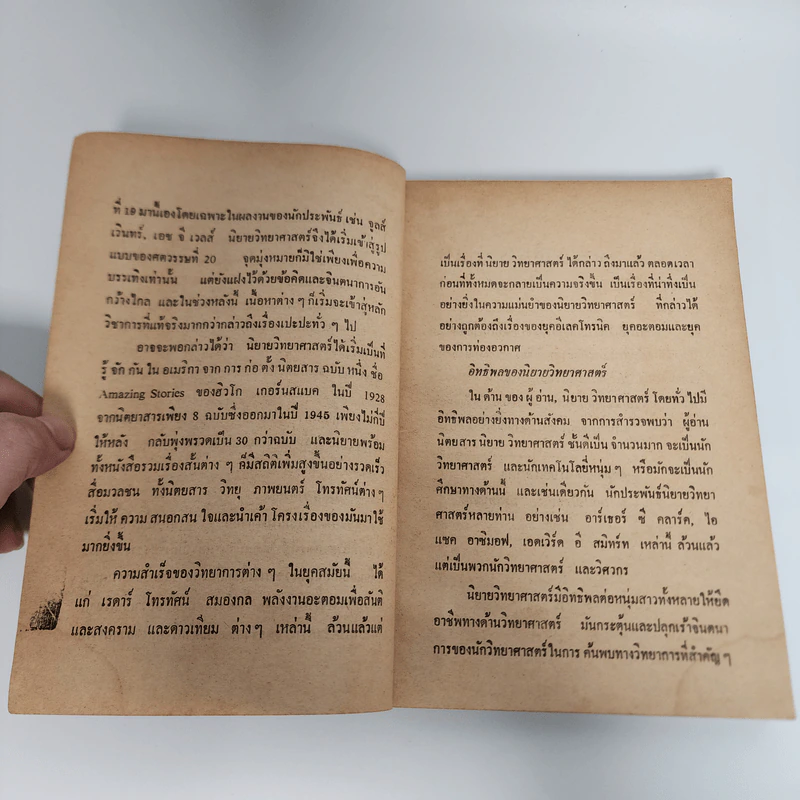 ที่ 19 มานี้เองโดยเฉพาะในผลงานของนักประพันธ์ เช่น จูลส์
เวินทร์, เอช จี เวลส์ นิยายวิทยาศาสตร์จึงได้เริ่มเข้าสู่รูป
แบบของศตวรรษที่ 20 จุดมุ่งหมายก็มิใช่เพียงเพื่อความ
บรรเทิงเท่านั้น แต่ยังแฝงไว้ด้วยข้อคิดและจินตนาการอัน
กว้างไกล และในช่วงหลังนี้ เนื้อหาต่าง ๆ ก็เริ่มจะเข้าสู่หลัก
วิชาการที่แท้จริงมากกว่ากล่าวถึงเรื่องเปะปะทั่ว ๆ ไป
อาจจะพอกล่าวได้ว่า นิยายวิทยาศาสตร์ได้เริ่มเป็นที่
รู้ จัก กัน ใน อเมริกา จาก การ ก่อ ตั้ง นิตยสาร ฉบับ หนึ่ง ชื่อ
Amazing Stories ของฮิวโก เกอร์นสแบค ในปี 1928
จากนิตยาสารเพียง 8 ฉบับซึ่งออกมาในปี 1945 เพียงไม่กี่ปี
ให้หลัง กลับพุ่งพรวดเป็น 30 กว่าฉบับ และนิยายพร้อม
ทั้งหนังสือรวมเรื่องสั้นต่าง ๆ ก็มีสถิติเพิ่มสูงขึ้นอย่างรวดเร็ว
สื่อมวลชน ทั้งนิตยสาร วิทยุ ภาพยนตร์ โทรทัศน์ต่างๆ
เริ่มให้ ความ สนอกสน ใจและนำเค้า โครงเรื่องของมันมาใช้
มากยิ่งขึ้น
ความสำเร็จของวิทยาการต่าง ๆ ในยุคสมัยนี้ ได้
แก่ เรดาร์ โทรทัศน์ สมองกล พลังงานอะตอมเพื่อสันติ
และสงคราม และดาวเทียม ต่าง ๆ เหล่านี้ ล้วนแล้วแต่
เป็นเรื่องที่ นิยาย วิทยาศาสตร์ ได้กล่าว ถึงมาแล้ว ตลอดเวลา
ก่อนที่ทั้งหมดจะกลายเป็นความจริงขึ้น เป็นเรื่องที่น่าทึ่งเป็น
อย่างยิ่งในความแม่นยำของนิยายวิทยาศาสตร์ ที่กล่าวได้
อย่างถูกต้องถึงเรื่องของยุคอีเลคโทรนิค ยุคอะตอมและยุค
ของการท่องอวกาศ
อิทธิพลของนิยายวิทยาศาสตร์
ใน ด้าน ของ ผู้ อ่าน, นิยาย วิทยาศาสตร์ โดยทั่ว ไปมี
อิทธิพลอย่างยิ่งทางด้านสังคม จากการสำรวจพบว่า ผู้อ่าน
นิตยสาร นิยาย วิทยาศาสตร์ ชั้นดีเป็น จำนวนมาก จะเป็นนัก
วิทยาศาสตร์ และนักเทคโนโลยีหนุ่ม ๆ หรือมักจะเป็นนัก
ศึกษาทางด้านนี้ และเช่นเดียวกัน นักประพันธ์นิยายวิทยา
ศาสตร์หลายท่าน อย่างเช่น อาร์เธอร์ ซี คลาร์ค, ไอ
แซค อาซิมอฟ, เอดเวิร์ด อี สมิทร์ท เหล่านี้ ล้วนแล้ว
แต่เป็นพวกนักวิทยาศาสตร์ และวิศวกร
นิยายวิทยาศาสตร์มีอิทธิพลต่อหนุ่มสาวทั้งหลายให้ยึด
อาชีพทางด้านวิทยาศาสตร์ มันกระตุ้นและปลุกเร้าจินตนา
การของนักวิทยาศาสตร์ในการ ค้นพบทางวิทยาการที่สำคัญ ๆ